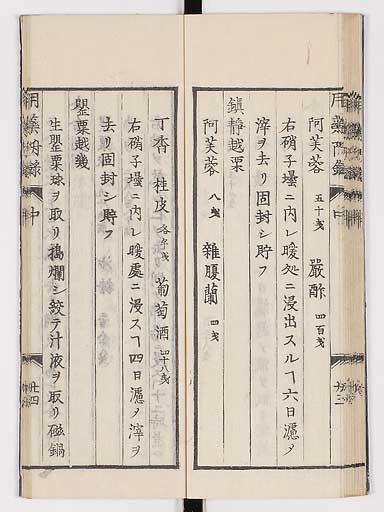 阿芙蓉 五十戔 嚴酢 四百戔
右硝子壜ニ内レ暖処ニ浸出スルヿ六日濾メ
滓ヲ去リ固封シ貯フ
鎮靜越栗
阿芙蓉 八戔 雜腹蘭 四戔
丁香 桂皮 各 戔 葡萄酒 四十八戔
右硝子壜ニ内レ暖處ニ浸スヿ四日濾メ滓ヲ
去リ固封シ貯フ
罌粟越幾
生罌粟球ヲ取リ搗爛シ絞テ汁液ヲ取リ磁鍋
中
廿四